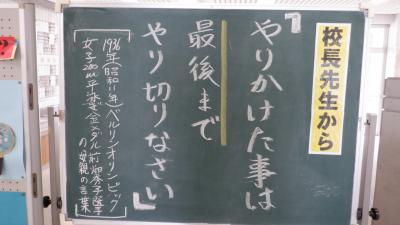 校長先生から
『やりかけた事は
最後まで
やり切りなさい』
1936年(昭和11年)ベルリンオリンピック
女子200m平泳ぎ金メダル前畑秀子選手
の母親の言葉